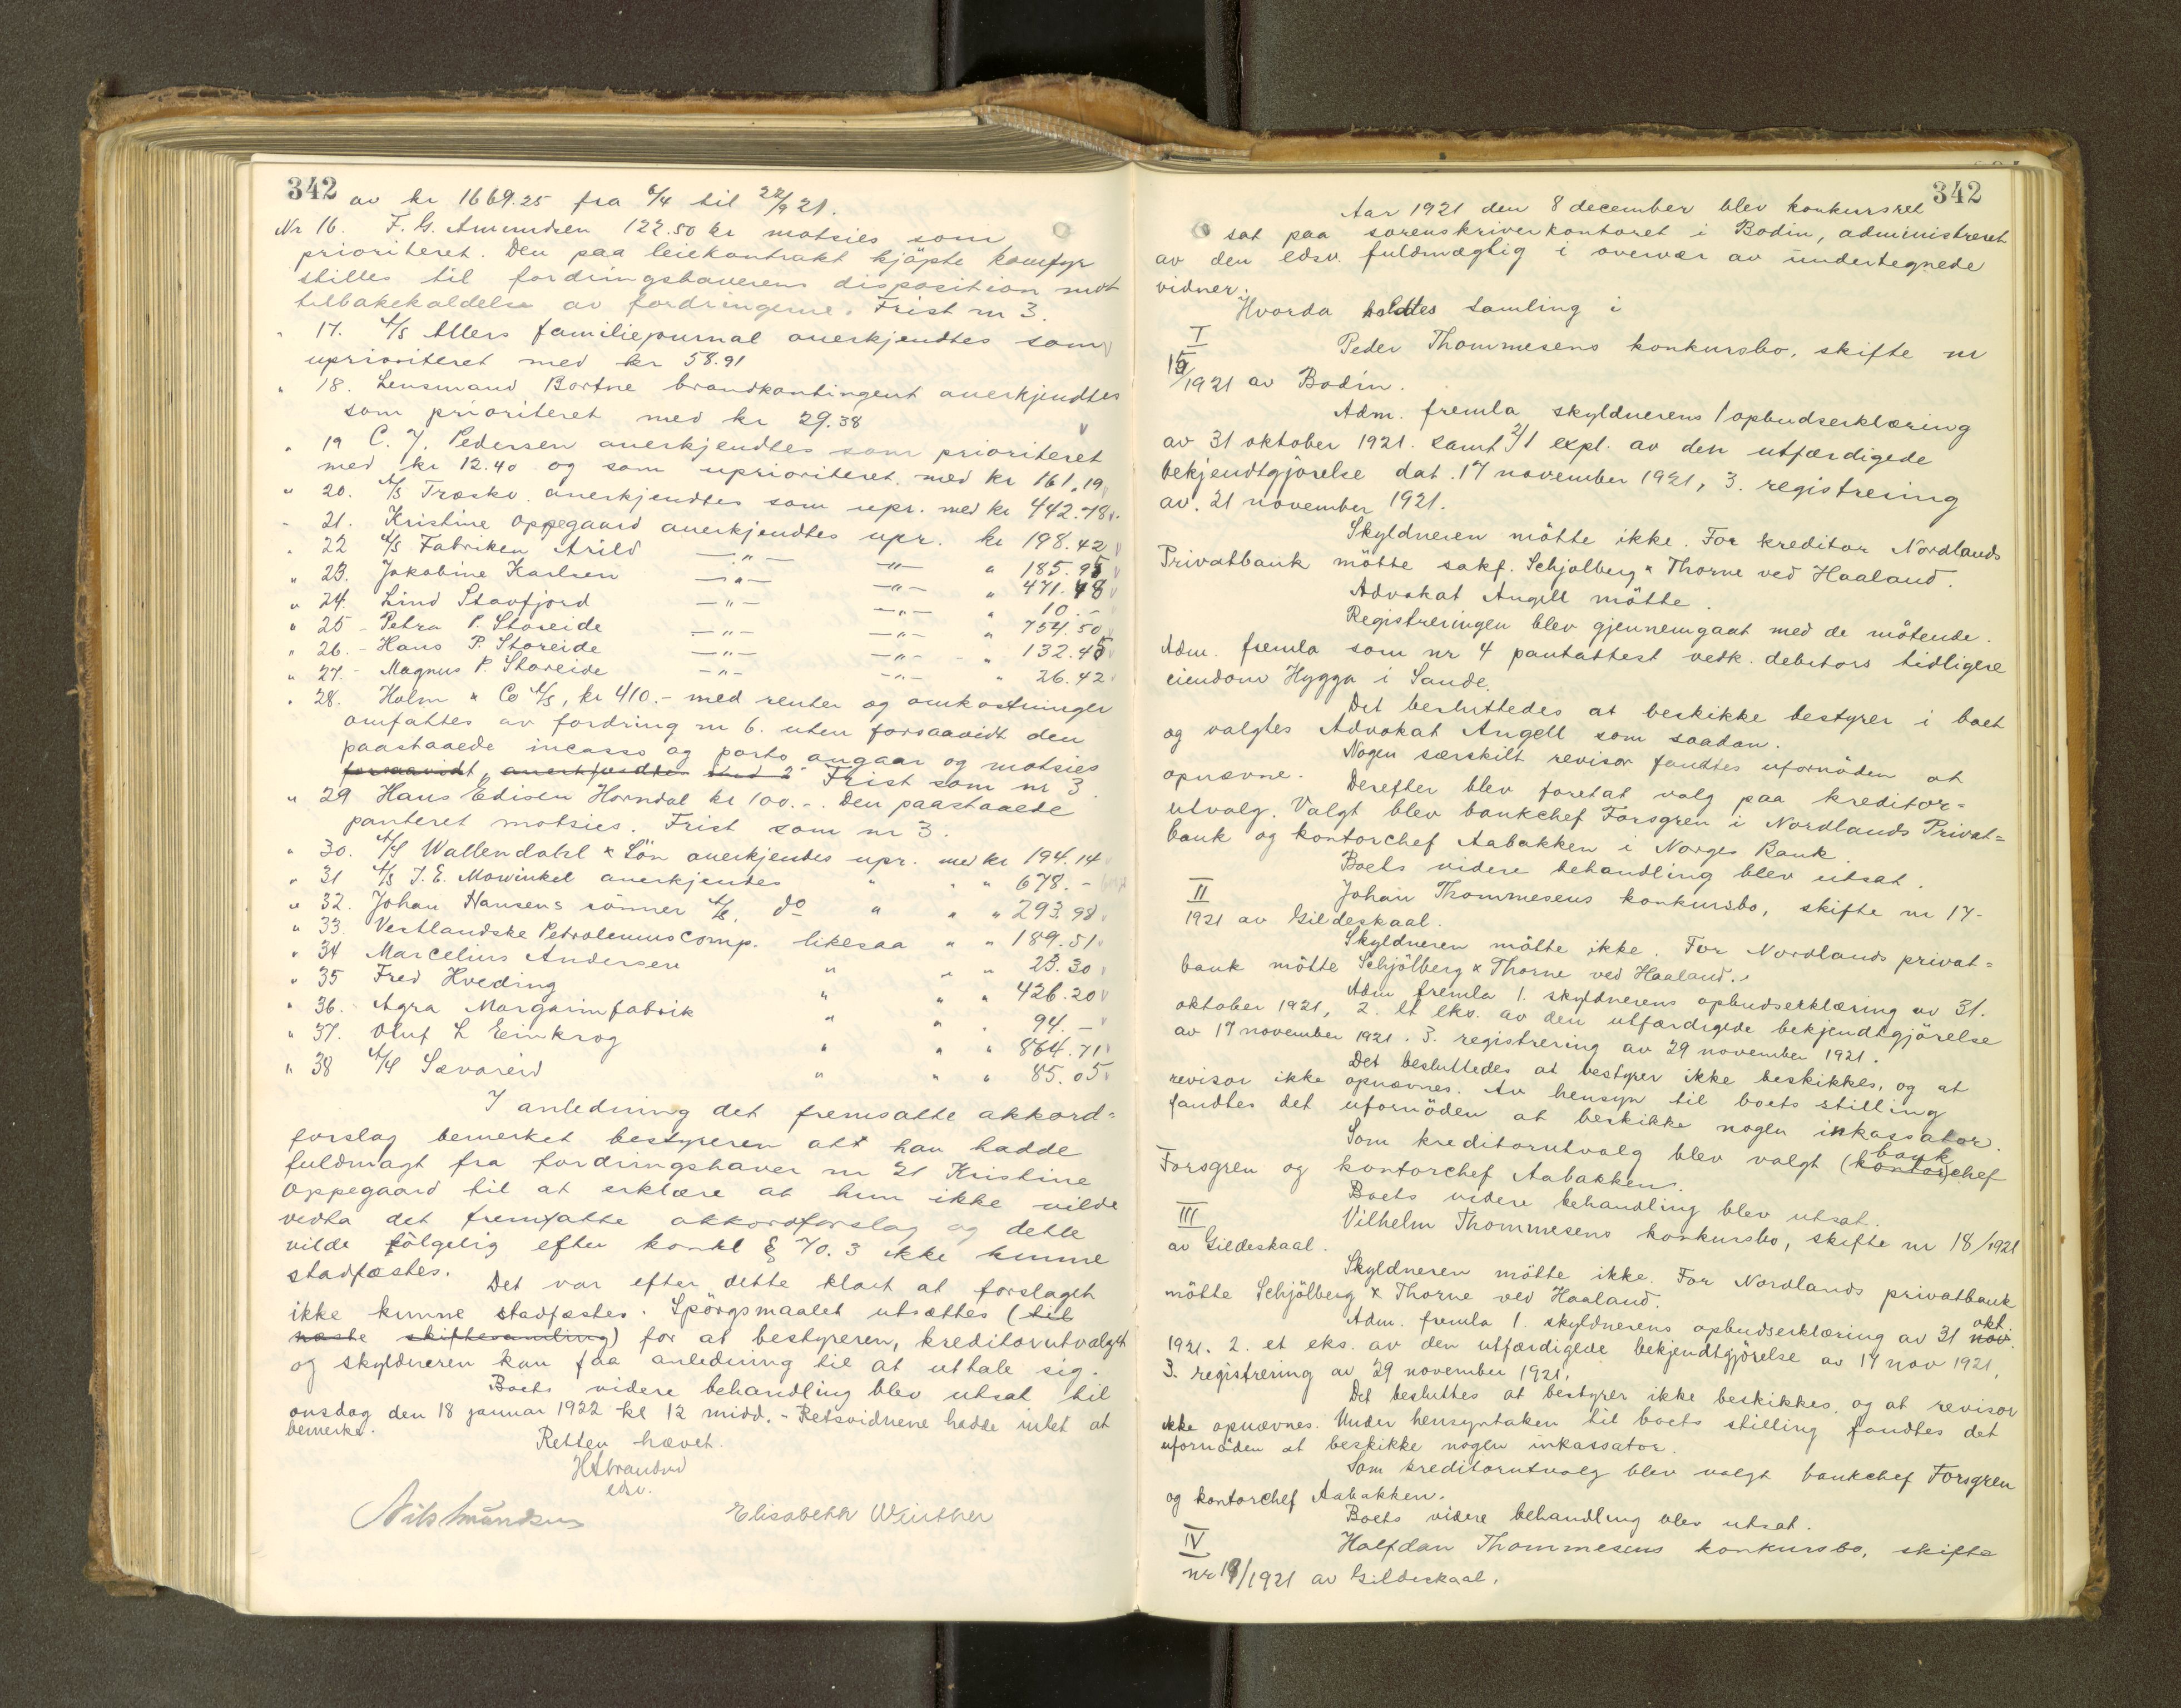 342
av kr 1669.25 fra 6/4 til 22/9 21.
Nr 16. F. G. Amundsen 122.50 kr motsies som
prioriteret. Den paa leiekontrakt kjøpte komfyr
stilles til fordringshaverens disposition mot
tilbakekaldelse av fordringerne. Frist nr 3.
" 17. A/S Allers familiejournal anerkjendtes som
uprioriteret med kr 58.91
" 18. Lensmand Bortne brandkontingent anerkjendtes
som prioriteret med kr 29.38
" 19 C. J. Pedersen anerkjendtes som prioriteret
med kr 12.40 og som uprioriteret med kr 161.19
" 20. A/S Træsko. anerkjendtes som upr. med kr 442.78
" 21. Kristine Oppegaard anerkjendtes upr. kr 198.42
" 22 A/S Fabriken Arild —"— —"— " 185.95
" 23. Jakobine Karlsen —"— —"— " 471.48
" 24. Lind Stavfjord —"— —"— " 10.-
" 25 - Petra P. Storeide —"— —"— " 754.50
" 26. - Hans P. Storeide —"— —"— " 132.45
" 27 - Magnus P. Storeide —"— —"— " 26.42
" 28. Holm & Co A/S, kr 410.- med renter og omkostninger
omfattes av fordring nr 6. uten forsaavidt den
paastaaede incasso og porto angaar og motsies
forsaavidt, anerkjendtes Frist som nr 3.
" 29 Hans Edisen Horndal kr 100.-. Den paastaaede
panteret motsies. Frist som nr 3.
" 30. A/S Wallendahl & Sön anerkjendes upr. med kr 194.14
" 31 A/S J. E. Mowinkel anerkjentes " " " 678.-
" 32. Johan Hansens sönner A/S. do " " " 293.98
" 33. Vestlandske Petroleumscomp. likesaa " " 189.51
" 34 Marcelius Andersen " " " 23.30
" 35 Fred Hveding " " " 426.20
" 36. Agra Margarinfabrik " " " 94.-
" 37. Oluf L Eeinkrog " " " 864.71
" 38 A/S Sævareid " " " 85.05
I anledning det fremsatte akkord=
forslag bemerket bestyreren att han hadde
fuldmagt fra fordringshaver nr 21 Kristine
Oppegaard til at erklære at hun ikke vilde
vedta det fremsatte akkordforslag og dette
vilde følgelig efter konkl § 70. 3 ikke kunne
stadfæstes.
Det var efter dette klart at forslaget
ikke kunne stadfæstes. Spörgsmaalet utsættes (til
næste skiftesamling) for at bestyreren, kreditorutvalget
og skyldneren kan faa anledning til at uttale sig.
Boets videre behandling blev utsat til
onsdag den 18 januar 1922 kl 12 midd. - Retsvidnene hadde intet at
bemerke.
Retten hævet.
edsv.
Elisabeth Winther
342
Aar 1921 den 8 december blev konkursret
sat paa sorenskriverkontoret i Bodin, administreret
av den edsv. fuldmægtig i overvær av undertegnede
vidner.
Hvorda holdtes samling i
I Peder Thommesens konkursbo, skifte nr
15/1921 av Bodin.
Adm. fremla skyldnerens 1 opbudserklæring
av 31 oktober 1921. samt 2/1 expl. av den utfærdigede
bekjendtgjörelse dat. 17 november 1921, 3. registrering
av. 21 november 1921.
Skyldneren mötte ikke. For kreditor Nordlands
Privatbank mötte sakf. Schjolberg & Thorne ved Haaland.
Advokat Angell mötte.
Registreringen blev gjennemgaat med de mötende.
Adm. fremla som nr 4 pantattest vedk. debitors tidligere
eiendom Hygga i Sande.
Det besluttedes at beskikke bestyrer i boet
og valgtes Advokat Angell som saadan.
Nogen særskilt revisor fandtes ufornöden at
opnævne.
Derefter blev foretat valg paa kreditor=
utvalg. Valgt blev bankchef Forsgren i Nordlands Privat=
bank og kontorchef Aabakken i Norges Bank.
Boets videre behandling blev utsat.
II Johan Thommesens konkursbo, skifte nr 17-
1921 av Gildeskaal.
Skyldneren mötte ikke. For Nordlands privat=
bank mötte Schjölberg & Thorne ved Haaland.
Adm fremla 1. skyldnerens opbudserklæring av 31.
oktober 1921, 2. et eks. av den utfærdigede bekjendtgjörelse
av 17 november 1921. 3. registrering av 29 november 1921.
Det besluttedes at bestyrer ikke beskikkes, og at
revisor ikke opnævnes. Av hensyn til boets stilling
fandtes det ufornöden at beskikke nogen inkassator.
Som kreditorutvalg blev valgt (kontor) bankchef
Forsgren og kontorchef Aabakken.
Boets videre behandling blev utsat.
III Vilhelm Thommesens konkursbo, skifte nr 18/1921
av Gildeskaal.
Skyldneren mötte ikke. For Nordlands privatbank
mötte Schjölberg & Thorne ved Haaland.
Adm. fremla 1. skyldnerens opbudserklæring av 31 nov. okt.
1921. 2. et eks. av den utfærdigede bekjendtgjörelse av 17 nov 1921,
3. registrering av 29 november 1921.
Det besluttes at bestyrer ikke beskikkes, og at revisor
ikke opnævnes. Under hensyntaken til boets stilling fandtes det
ufornöden at beskikke nogen inkassator.
Som kreditorutvalg blev valgt bankchef Forsgren
og kontorchef Aabakken.
Boets videre behandling blev utsat.
IV Halfdan Thommesens konkursbo, skifte
nr 19/1921 av Gildeskaal.